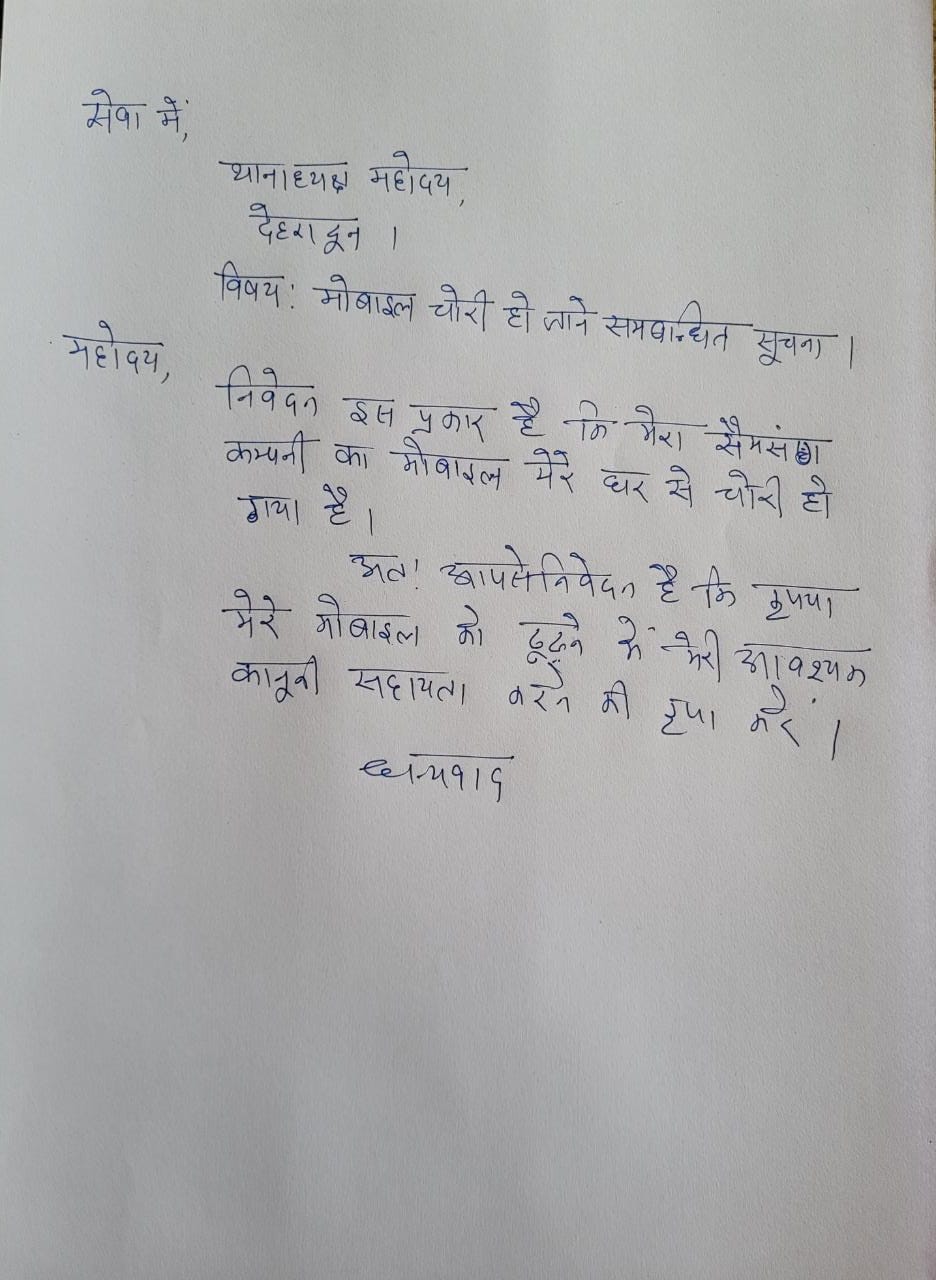 सेवा में,
थानाध्यक्ष महोदय,
देहरादून ।
विषय: मोबाइल चोरी हो जाने सम्बन्धित सूचना ।
महोदय,
निवेदन इस प्रकार है कि मेरा सैमसंग
कम्पनी का मोबाइल मेरे घर से चोरी हो
गया है ।
अत: आपसे निवेदन है कि कृपया
मेरे मोबाइल को ढूढ़ने में मेरी आवश्यक
कानूनी सहायता करने की कृपा करें ।
धन्यवाद